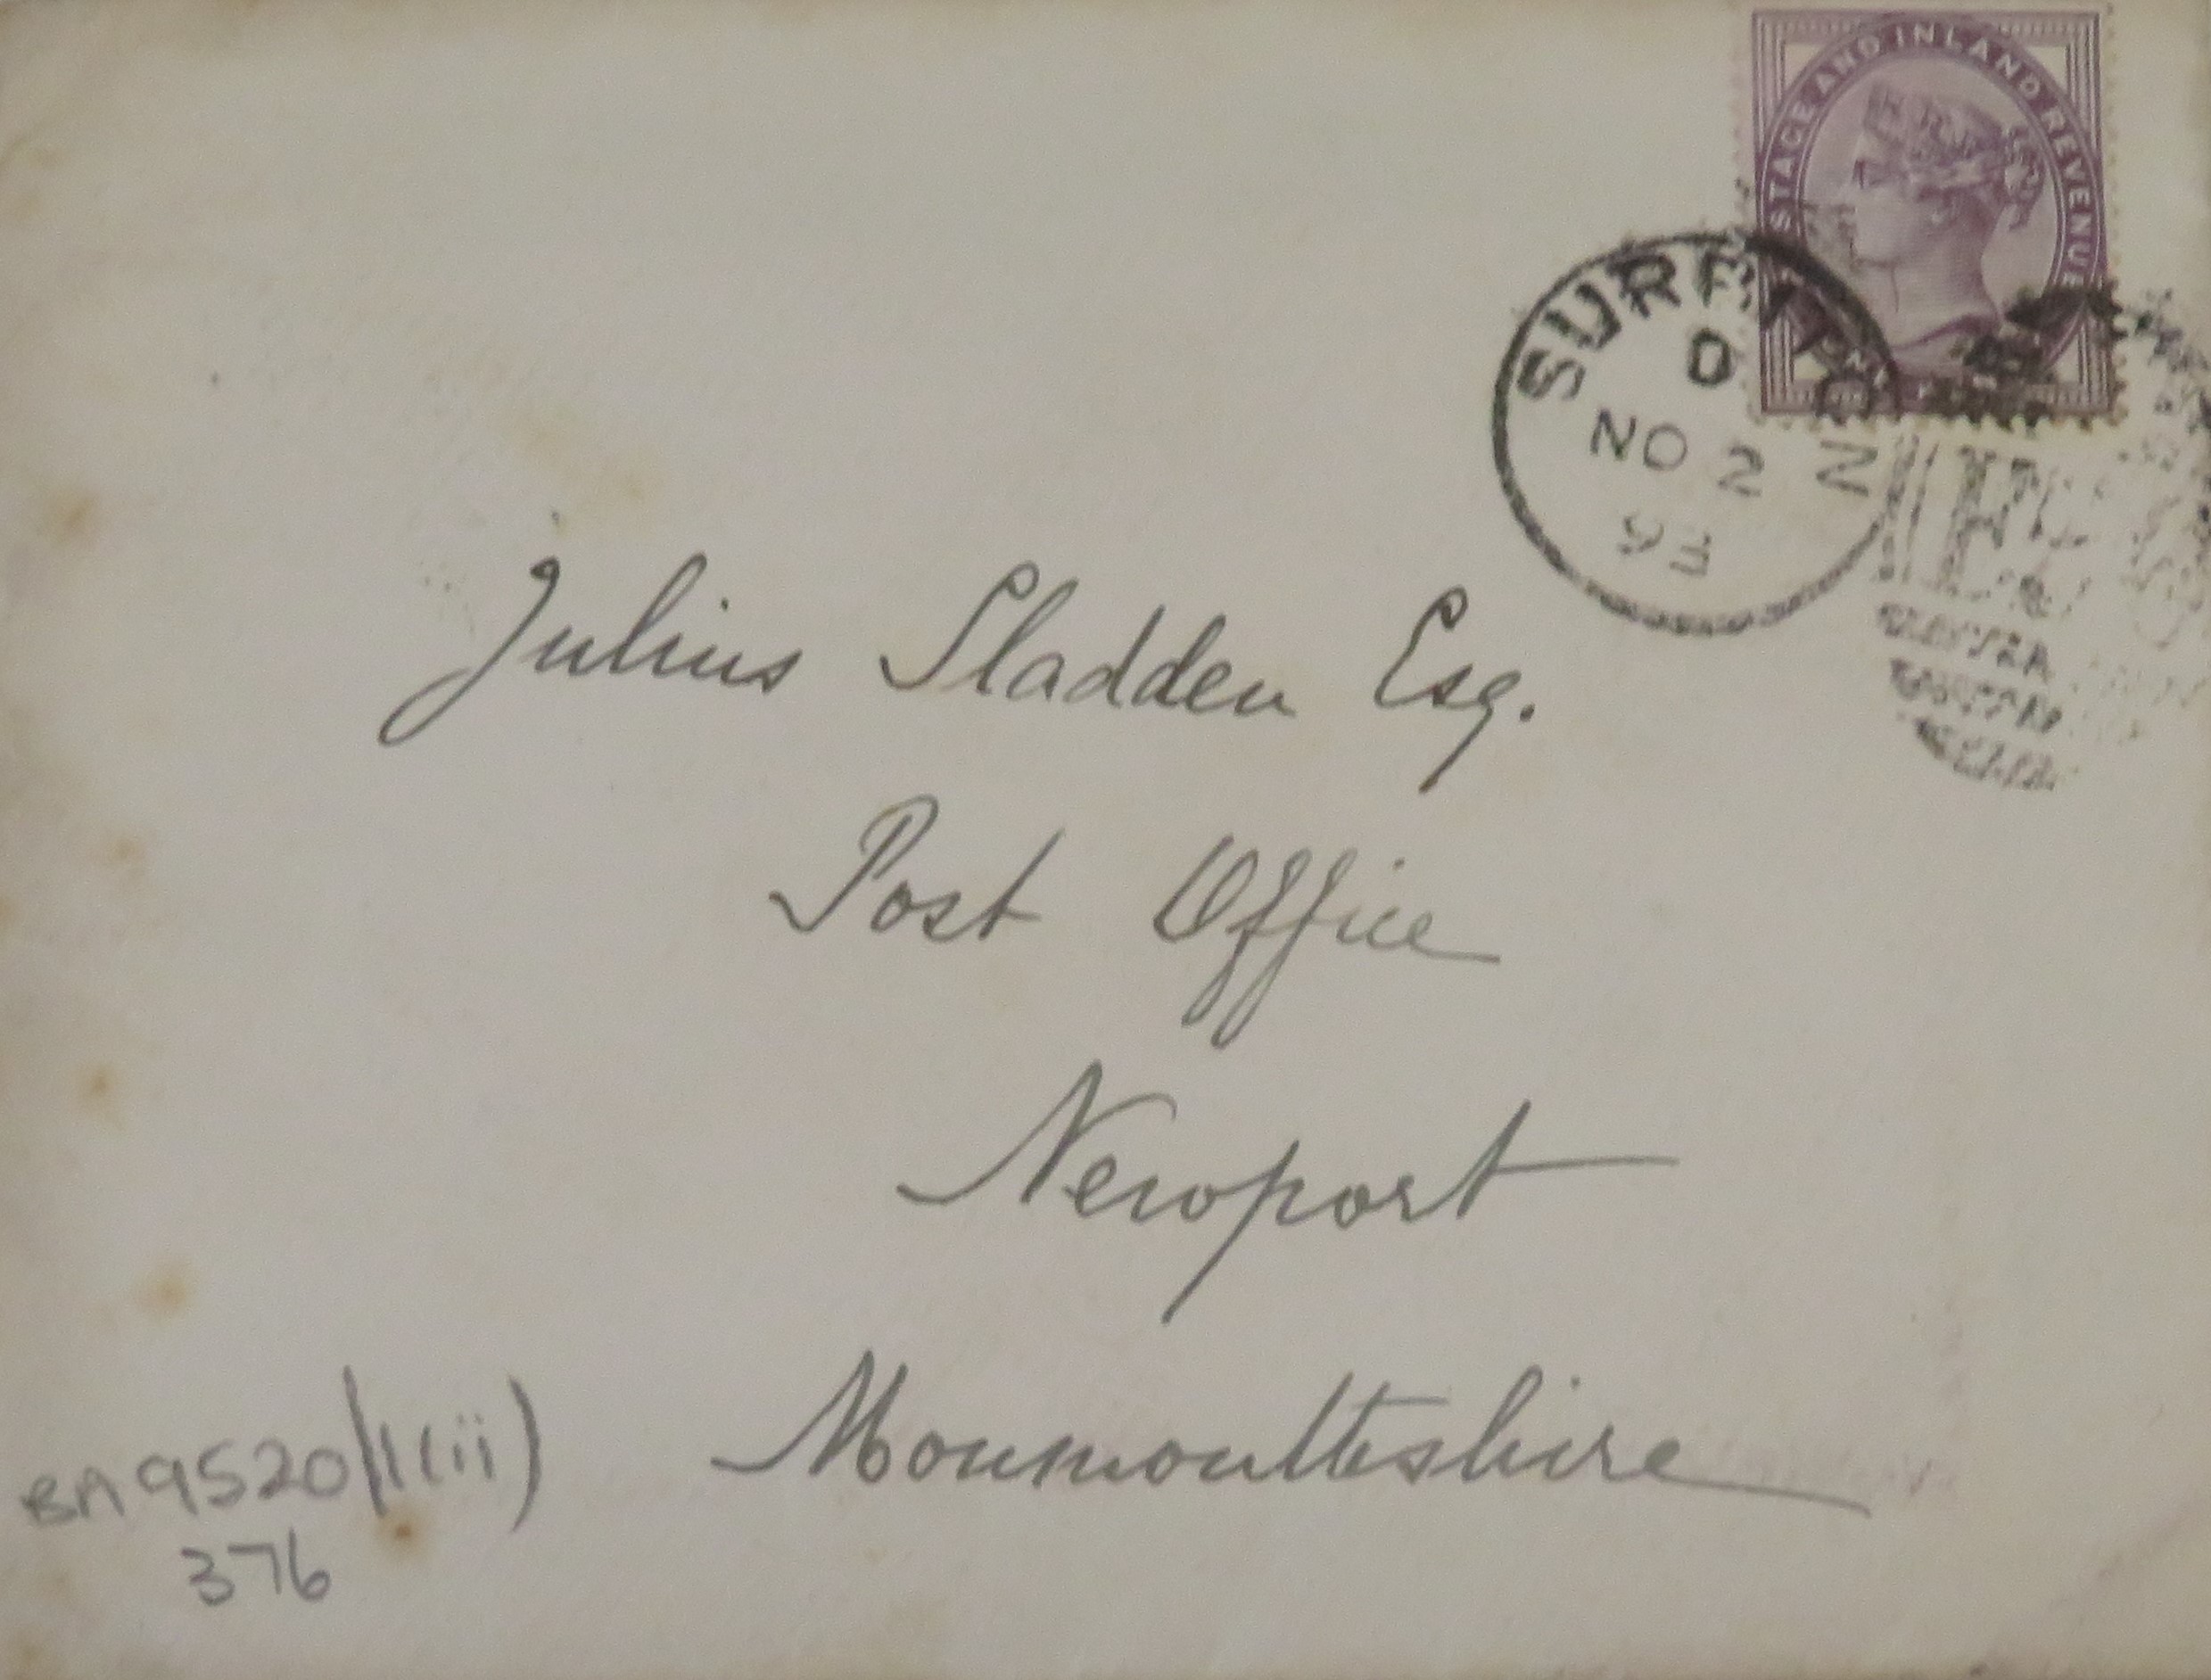 STAGE AND INLAND REVENUE
SURBITON
D
NO 2
93
Julius Sladden Esq.
Post Office
Newport
Monmouthshire
BA 9520/1(ii)
376